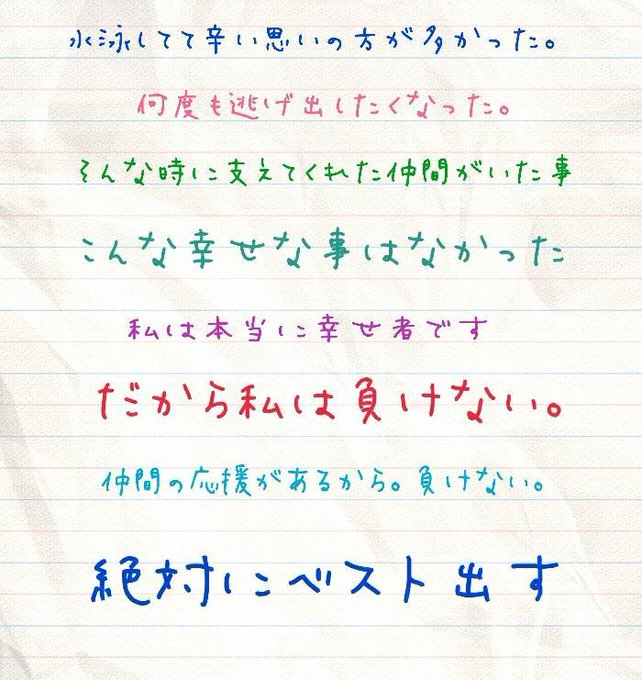 水泳してて辛い思いの方が多かった。
何度も逃げ出したくなった。
そんな時に支えてくれた仲間がいた事
こんな幸せな事はなかった
私は本当に幸せ者です
だから私は負けない。
仲間の応援があるから。負けない。
絶対にベスト出す